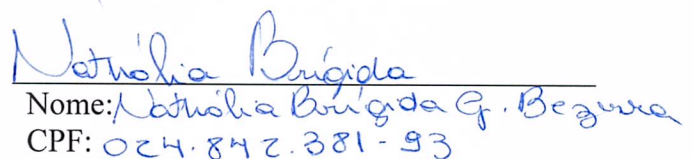 Nathália Brígida
Nome: Nathália Brígida G. Bezerra
CPF: 024.842.381-93